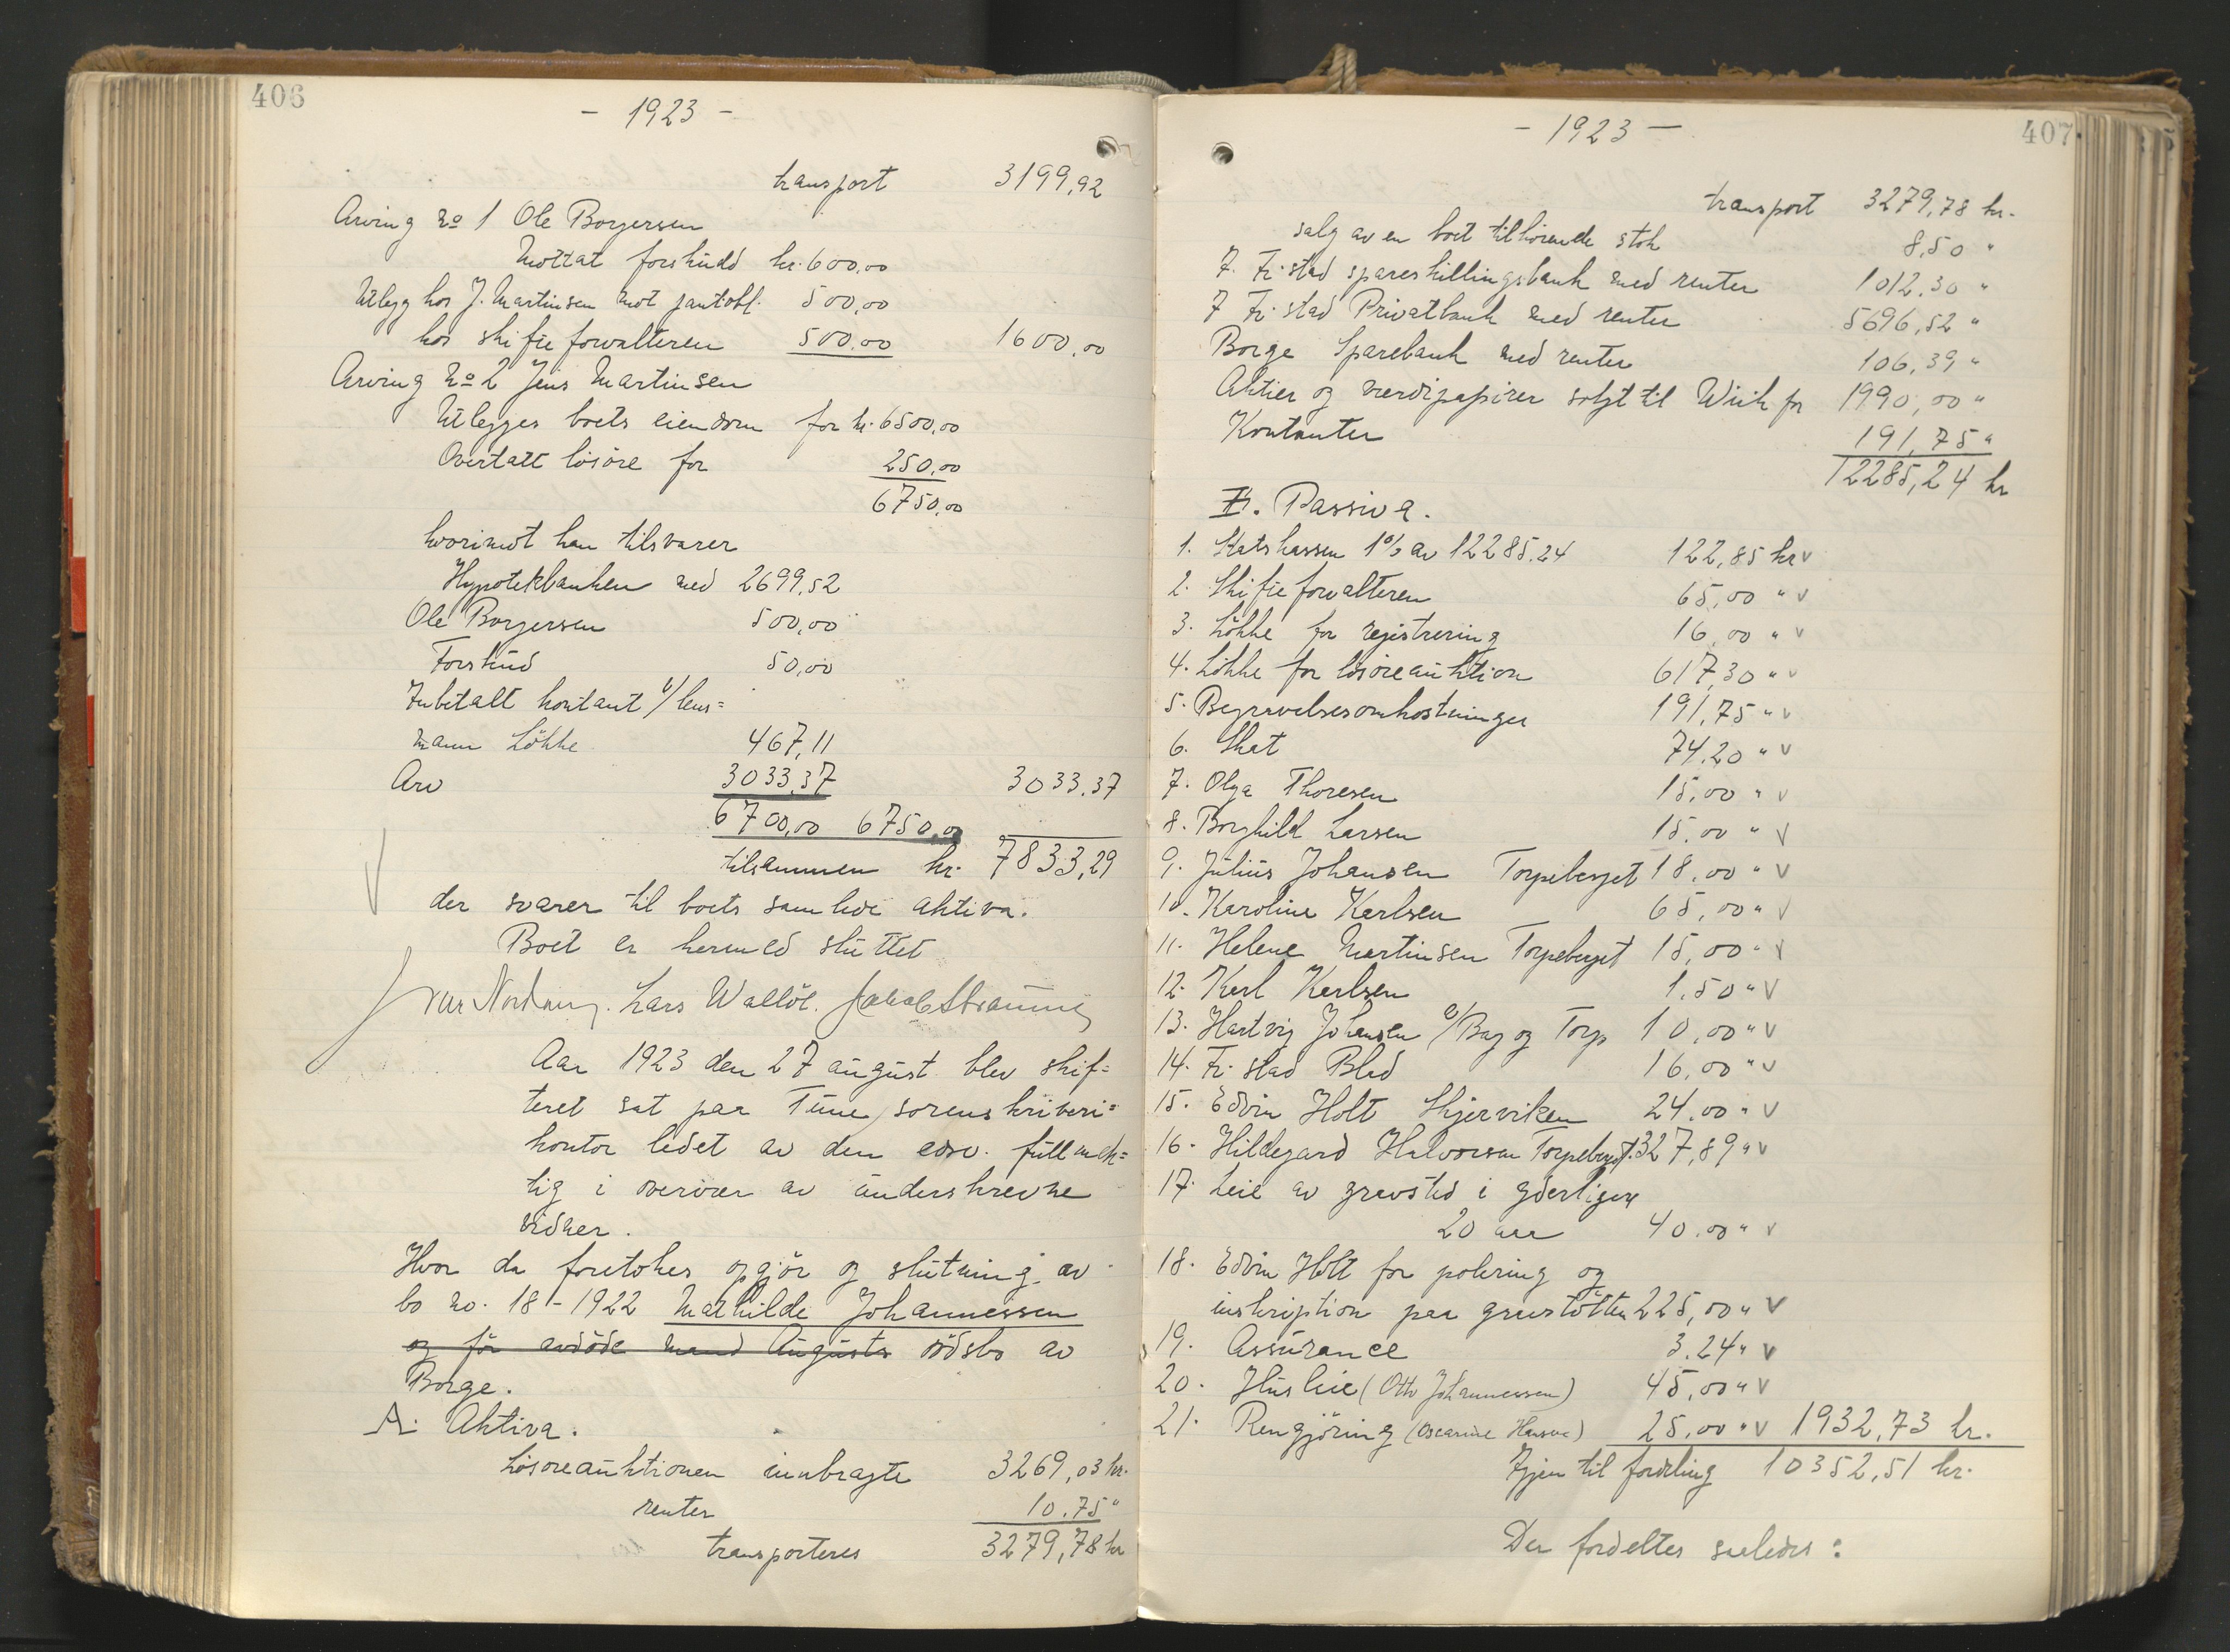 406
- 1923 -
transport 3199,92
Arving no 1 Ole Borgersen
Mottat forskudd kr. 600,00
Utlegg hos J. Martinsen mot pantobl. 500,00
hos skifteforvalteren 500,00 1600,00
Arving no 2 Jens Martinsen
Utlegges boets eiendom for kr. 6500,00
Overtatt løsøre for 250,00
6750,00
hvorimot han tilsvarer
Hypotekbanken med 2699,52
Ole Borgersen 500,00
Forskud 50,00
Inbetalt kontant t/ lens=
mann Løkke 467,11
Arv 3033,37 3033,37
6700,00 6750,00
tilsammen kr. 7833,29
der svarer til boets samlede aktiva.
Boet er hermed sluttet
Lars Walløe.
Aar 1923 den 27 august blev skif=
teret sat paa Tune sorenskriveri=
kontor ledet av den edsv. fullmek=
tig i overvær av underskrevne
vidner.
Hvor da foretokes opgjør og slutning av
bo no. 18 - 1922 Mathilde Johannessen
og før avdøde mand Augusts dødsbo av
Borge.
A. Aktiva.
Løsøreauktionen innbragte 3269,03 kr.
renter 10.75 "
transporteres 3279,78 kr
407
- 1923 -
transport 3279,78 kr.
salg av en boet tilhørende stok 8,50 "
7. Fr.stad spareskillingsbank med renter 1012.30 "
7 Fr.stad Privatbank med renter 5696,52 "
Borge Sparebank med renter 106,39 "
Aktier og verdipapirer solgt til Wiik for 1990,00 "
Kontanter 191,75 "
12285,24 kr
II. Passiva.
1. Statskassen 1% av 12285.24 122,85 kr v
2. Skifteforvalteren 65,00 " v
3. Løkke for registrering 16,00 " v
4. Løkke for løsøreauktion 617,30 " v
5. Begravelsesomkostninger 191,75 " v
6. Skat 74.20 " v
7. Olga Thoresen 15,00 " v
8. Borghild Larsen 15.00 " v
9. Julius Johansen Torpeberget 18.00 " v
10. Karoline Karlsen 65,00 " v
11. Helene Martinsen Torpeberget 15,00 " v
12. Karl Karlsen 1.50 " v
13. Hartvig Johansen a/ Begby Torp 10,00 " v
14. Fr.stad Blad 16,00 " v
15. Edvin Holt Skjærviken 24.00 " v
16. Hildegard Halvorsen Torpeberget. 327,89 " v
17. Leie av gravsted i yderligere
20 aar 40.00 " v
18. Edvin Holt for polering og
inskription paa gravstøtten 225,00 " v
19. Assurance 3.24 " v
20. Husleie (Otto Johannessen) 45,00 " v
21. Rengjøring (Oscarine Hansen) 25,00 " v 1932,73 kr.
Igjen til fordeling 10352,51 kr.
Der fordeltes saaledes: